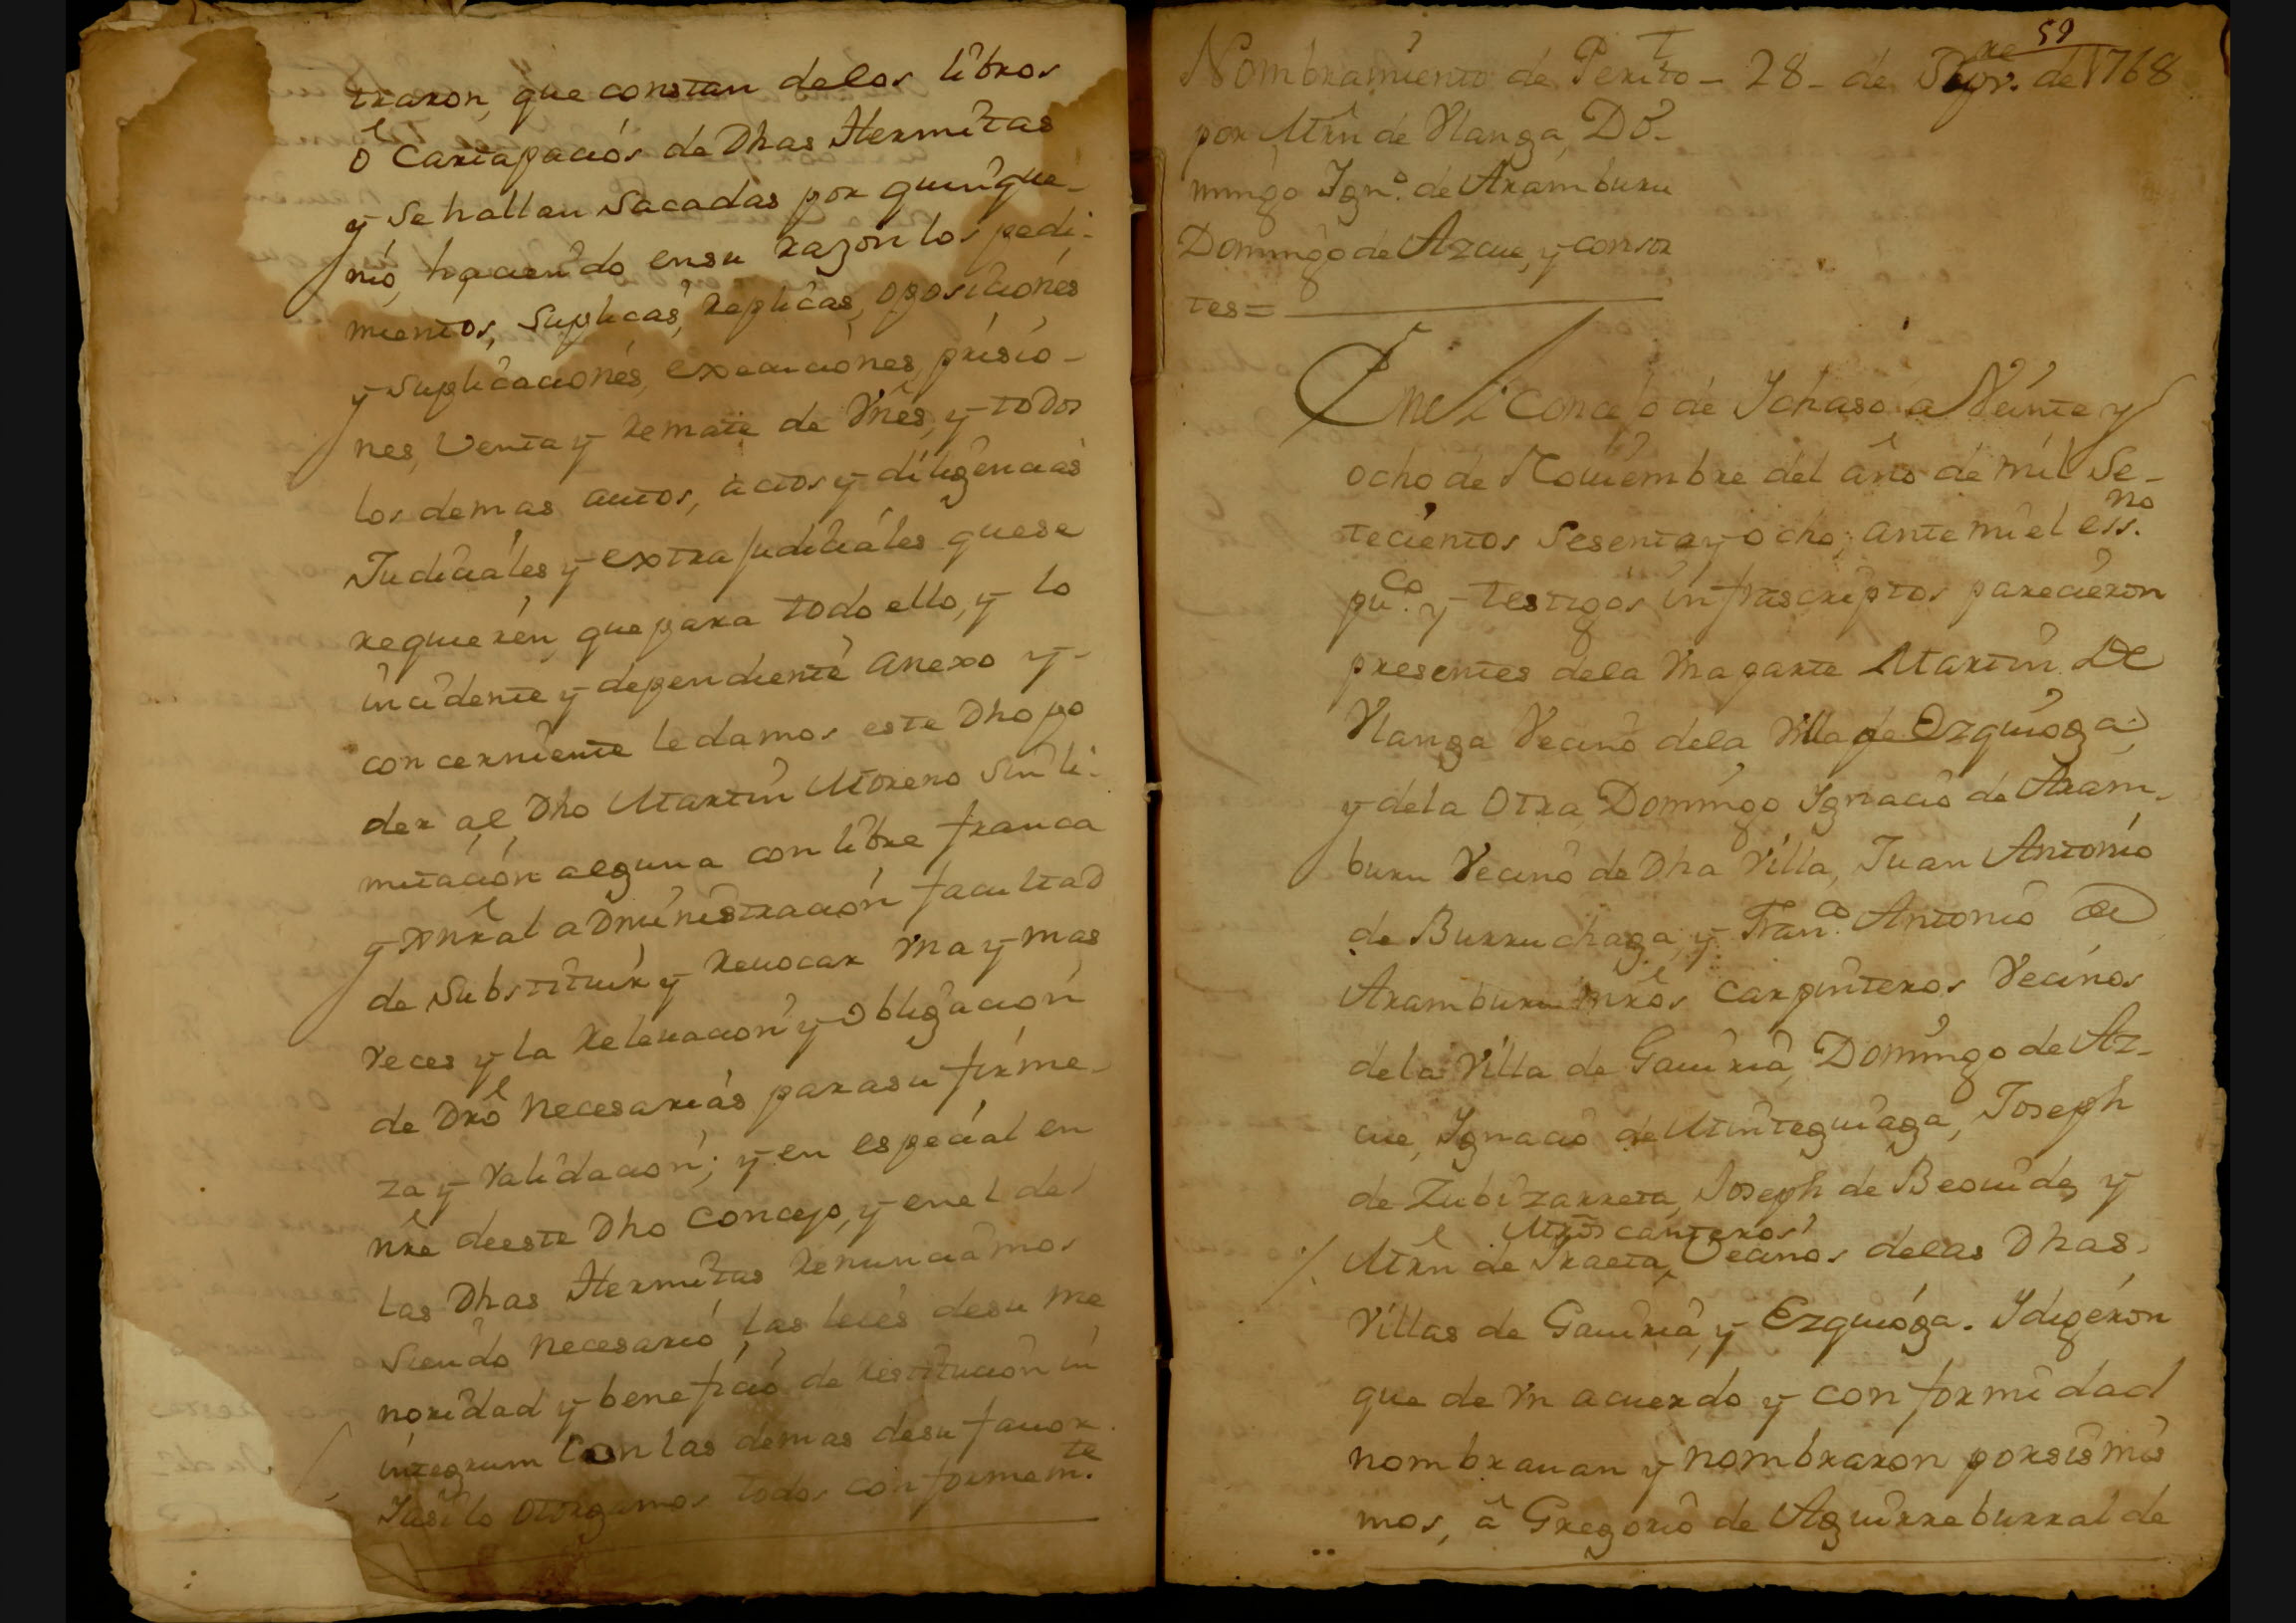 traron, que constan delos libros
ô Cartapaciós de Dhas Hermitas
y se hallan Sacadas por quinque-
nió, haciendo ensu razon los pedi-
mientos, Suplicas, replicas, oposiciones
y suplicaciones, execuciones, prisio-
nes, Venta y remate de Vnês, y todos
los demas autos, actos y diligencias
Judiciales y extrajudiciáles quese
requierén, que para todo ello, y lo
incidente y dependiente anexo y
concerniente ledamos este Dho po
der al Dho Martin Moreno Sin li-
mitación alguna con libre franca
y xnral aDministración facultaD
de Substituir y revocar Vna y mas
Veces y la relevacion y obligación
de Drô necesarias parasu firme-
za y Validacion; y en especial en
nrê deeste Dho Concejo, y enel de
las Dhas Hermitas renunciamos
Siendo necesarió las leiés desu me
noridad y beneficio de restitución in
integrum Con las demas desu favor.
Iasi lo otorgamos todos conformemte.
59
Nombramiento de Perito - 28 - de Nre de 1768
por Mrn de Vlanga, Do-
mingo Ignº. de Aramburu
Domingo de Azcue, y consor
tes =
Enel Concejo de Ichaso a Veinte y
ocho de Noviembre del año de mil Se-
tecientos Sesenta y ocho; ante mi el essno.
puco. y testigos infrascriptos parecieron
presentes dela Vna parte Martin De
Vlanga Vecino dela Villa de Ezquioga
y dela Otra Domingo Ignacio de Aram-
buru Vecino de Dha Villa, Juan Antonio
de Burruchaga, y Franco. Antonio de
Aramburu mrôs Carpinteros Vecinos
dela Villa de Gauiria, Domingo de Az-
cue, Ignacio de Minteguiaga, Joseph
de Zubizarreta, Joseph de Beouide, y
Mros canteros
Mrñ de Iraeta, Vecinos delas Dhas
Villas de Gauiria, y Ezquióga. Idigéron
que de Vn acuerdo y conformidad
nombrauan y nombraron porsimis
mos, â Gregorio de Aguirreburral de